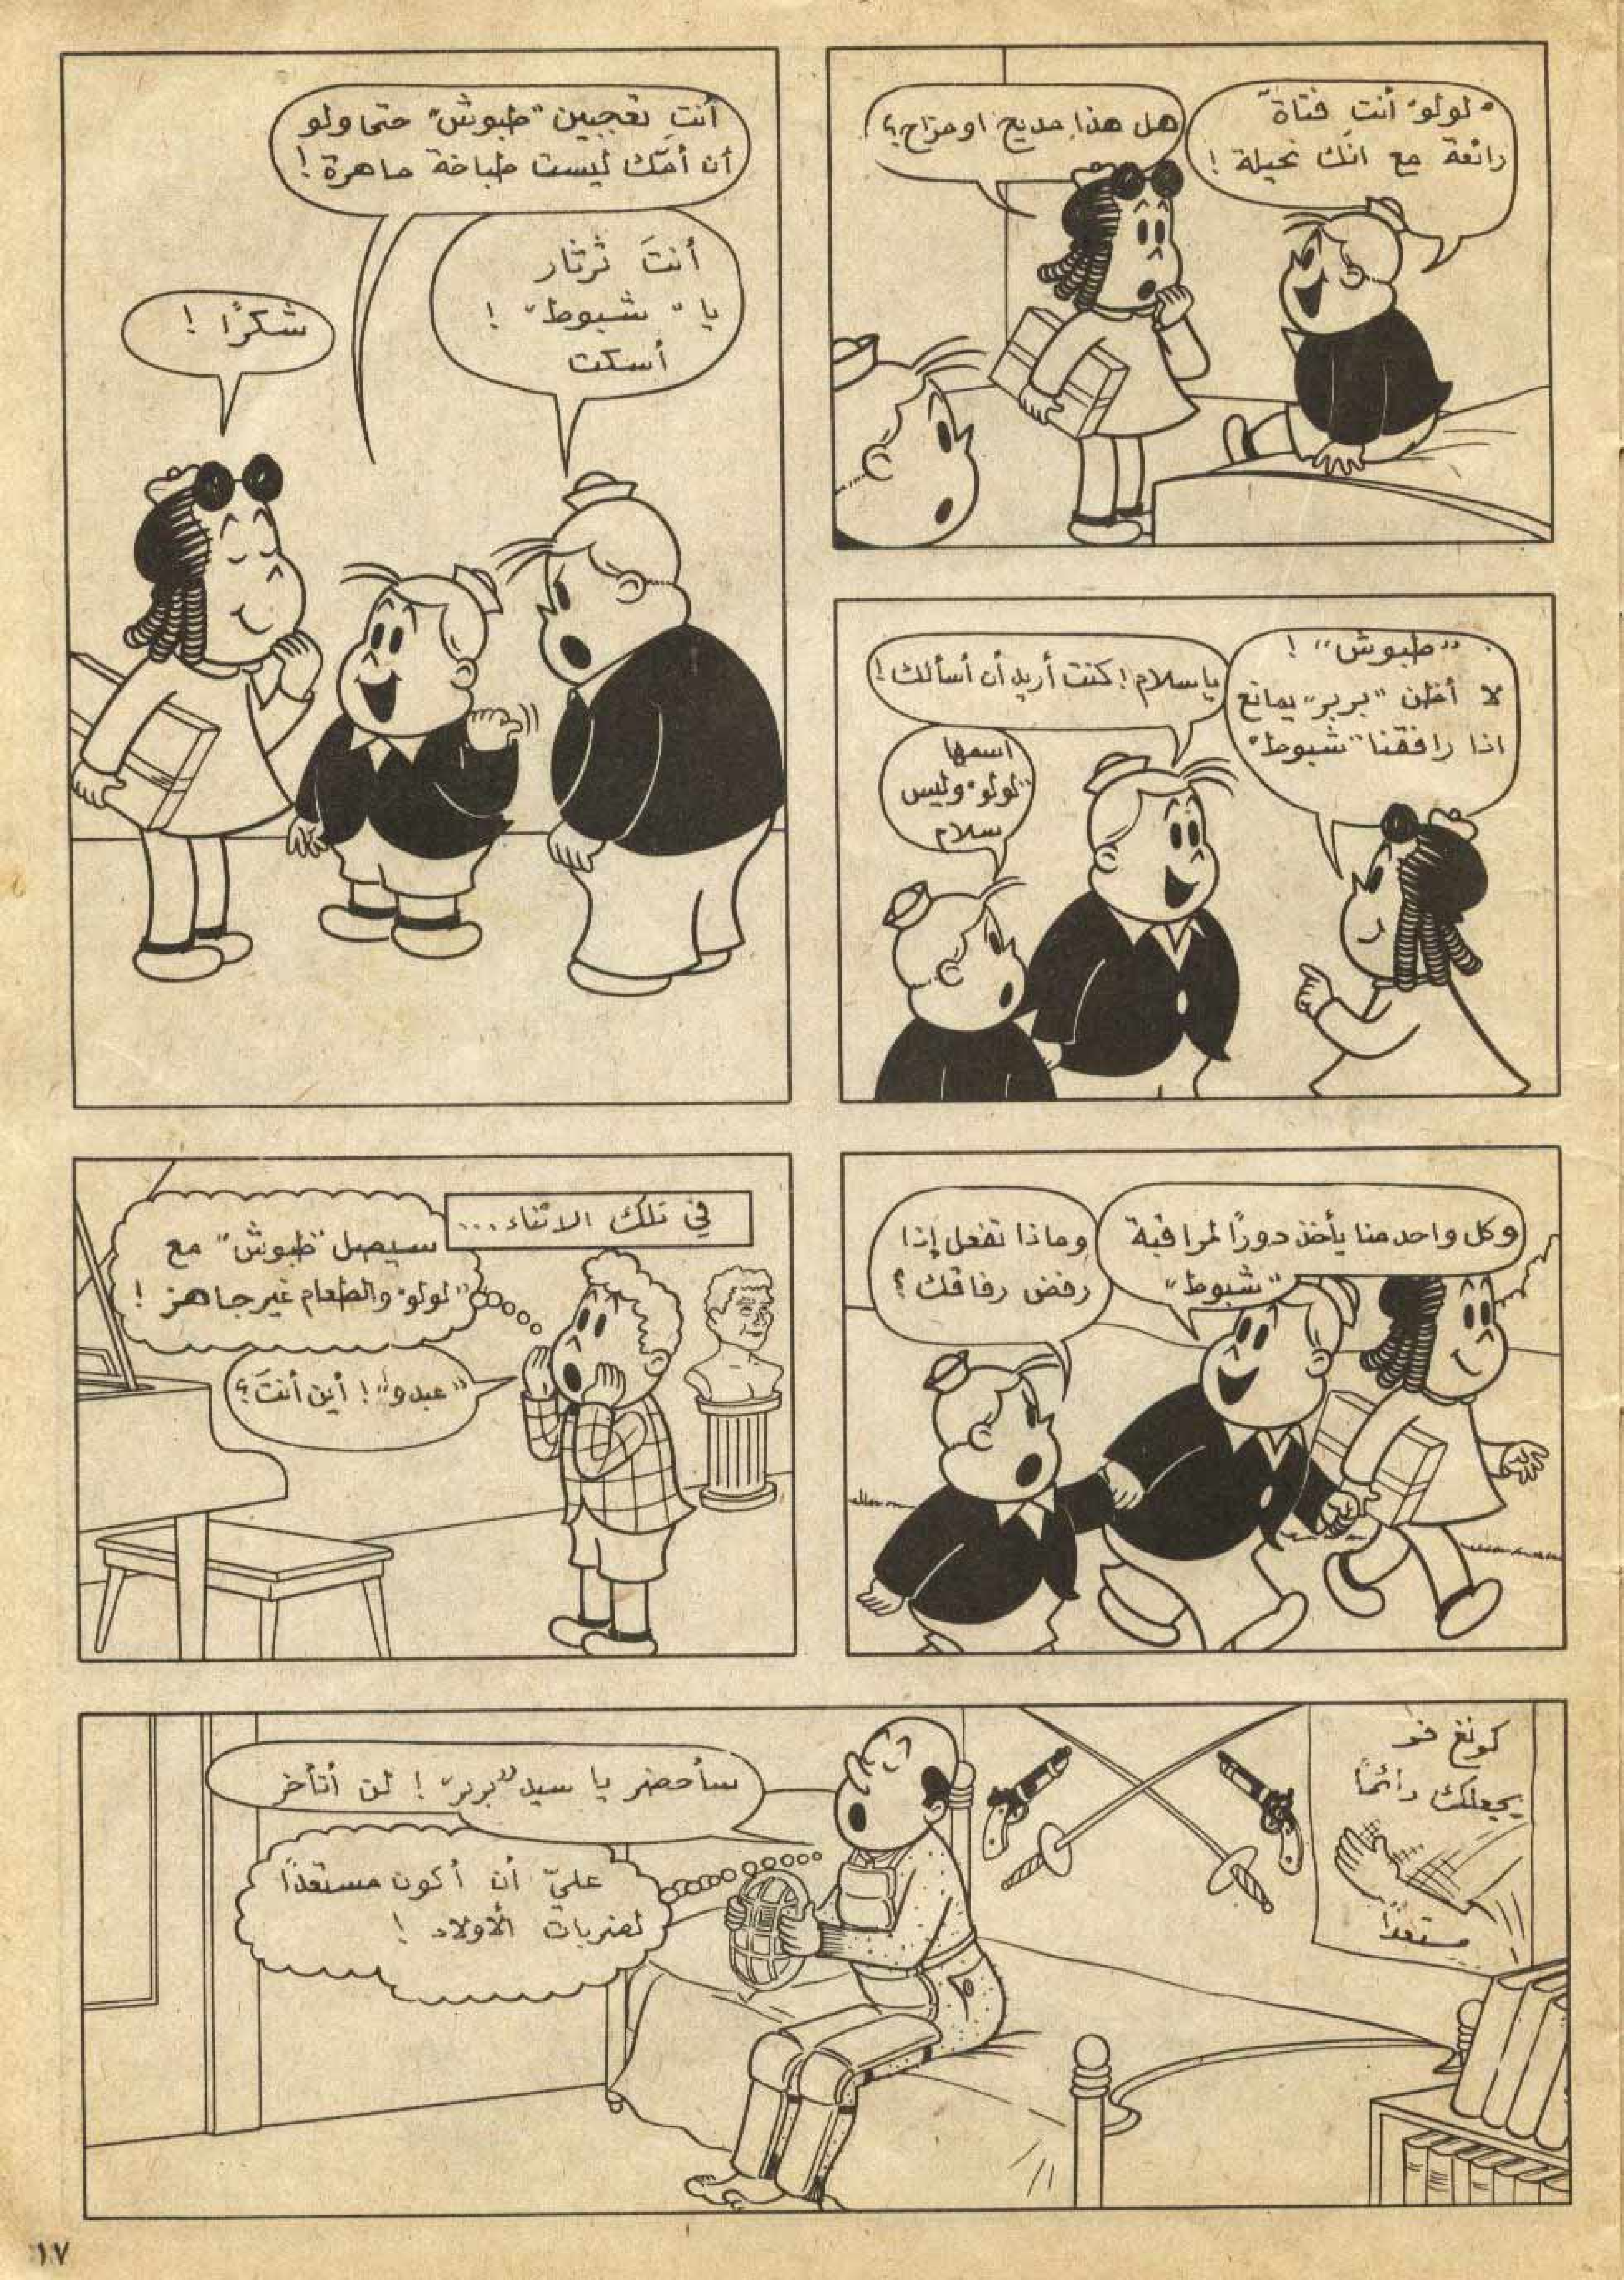 "لولو" أنتِ فتاة
رائعة مع انك نحيلة !
هل هذا مديح او مزاح؟
أنتِ تعجبين "طبوش" حتى ولو
أن أمّك ليست طباخة ماهرة !
أنتَ ثرثار
يا "شبوط" !
أسكت
شكرًا !
"طبوش" !
لا أظن "بربر" يمانع
اذا رافقنا "شبوط"
يا سلام ! كنت أريد أن أسألك !
اسمها
"لولو" وليس
سلام
وكل واحد منا يأخذ دورًا لمراقبة
"شبوط"
وماذا تفعل إذا
رفض رفاقك ؟
في تلك الاثناء...
سيصل "طبوش" مع
"لولو" والطعام غير جاهز !
"عبدو" ! أين أنتَ ؟
كونغ فو
يجعلك دائمًا
مستعدًا
سأحضر يا سيد "بربر" ! لن أتأخر
عليّ أن أكون مستعدًا
لضربات الأولاد !
١٧